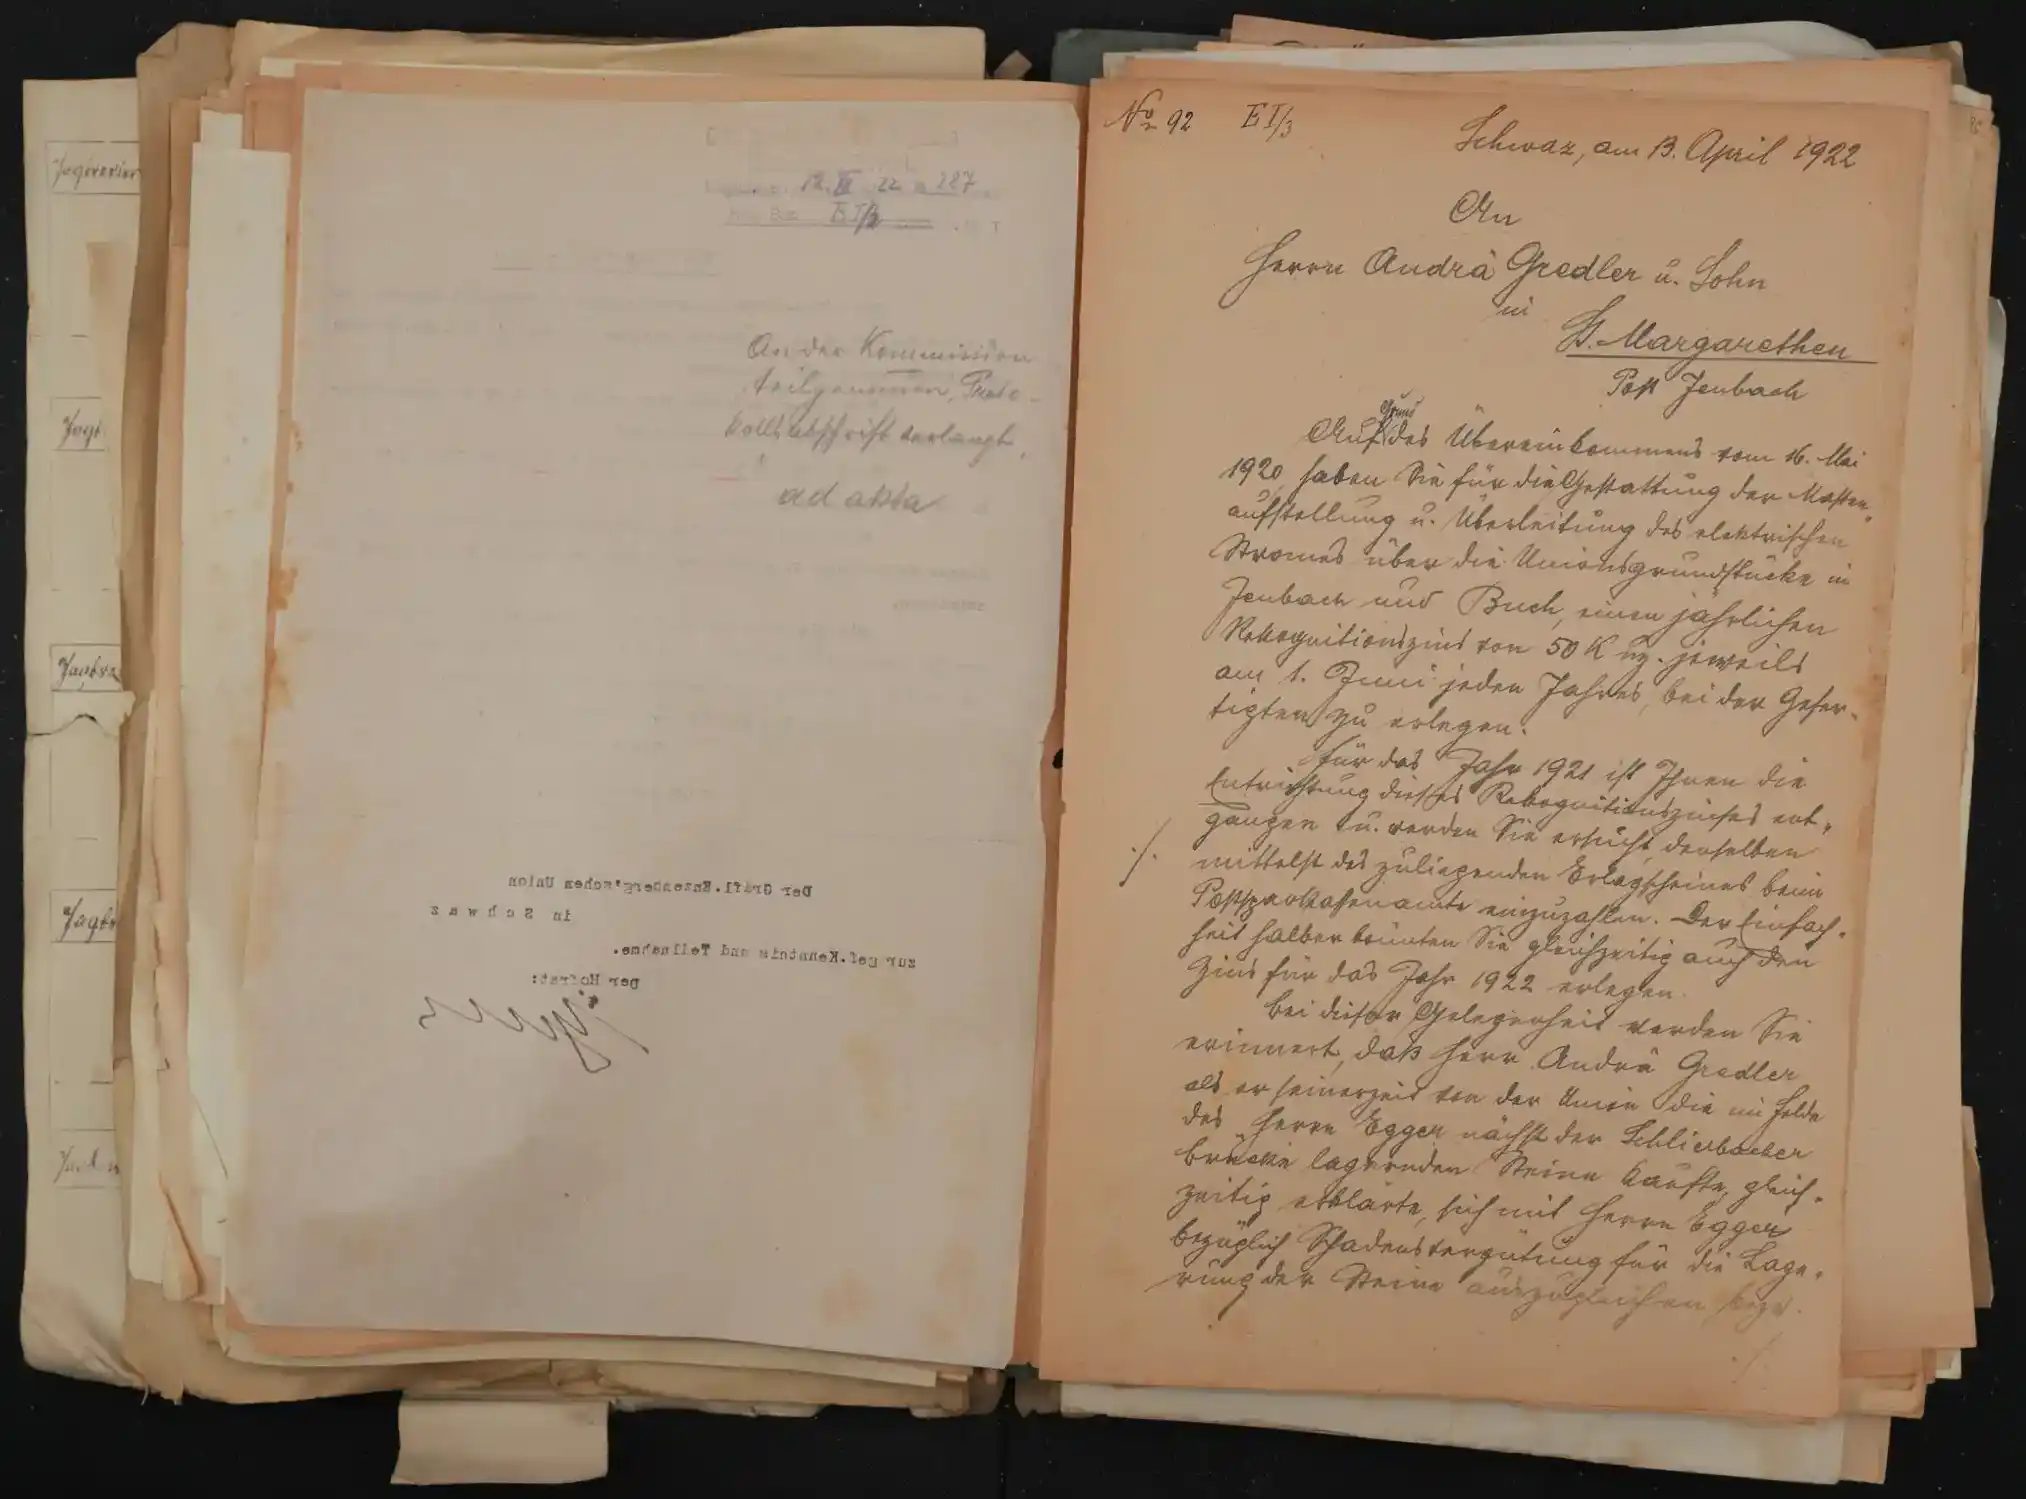 Jagdrevier
Jagd
12. III 22 No 287
E I/3
An der Kommission
teilgenommen, Proto-
kollsabschrift verlangt.
ad akta
Der Gräfl. Enzenberg'schen Union
in Schwaz
zur gef. Kenntnis und Teilnahme.
Der Hofrat:
No 92 E I/3
Schwaz, am 13. April 1922
An
Herrn Andrä Gredler u. Sohn
in
St. Margarethen
Post Jenbach
Auf Grund des Übereinkommens vom 16. Mai
1920 haben Sie für die Gestattung der Masten-
aufstellung u. Überleitung des elektrischen
Stromes über die Unionsgrundstücke in
Jenbach und Buch, einen jährlichen
Rekognitionszins von 50 K ng. jeweils
am 1. Juni jeden Jahres, bei der Gefer-
tigten zu erlegen.
Für das Jahr 1921 ist Ihnen die
Entrichtung dieses Rekognitionszinses ent-
gangen u. werden Sie ersucht, denselben
./. mittelst des zuliegenden Erlagscheines beim
Postsparkassenamte einzuzahlen. Der Einfach-
heit halber könnten Sie gleichzeitig auch den
Zins für das Jahr 1922 erlegen.
Bei dieser Gelegenheit werden Sie
erinnert, daß Herr Andrä Gredler
als er seinerzeit von der Union die im Felde
des Herrn Egger nächst der Schlierbacher
brücke lagernden Steine kaufte, gleich-
zeitig erklärte, sich mit Herrn Egger
bezüglich Schadensvergütung für die Lage-
rung der Steine auszugleichen bezw.
./.